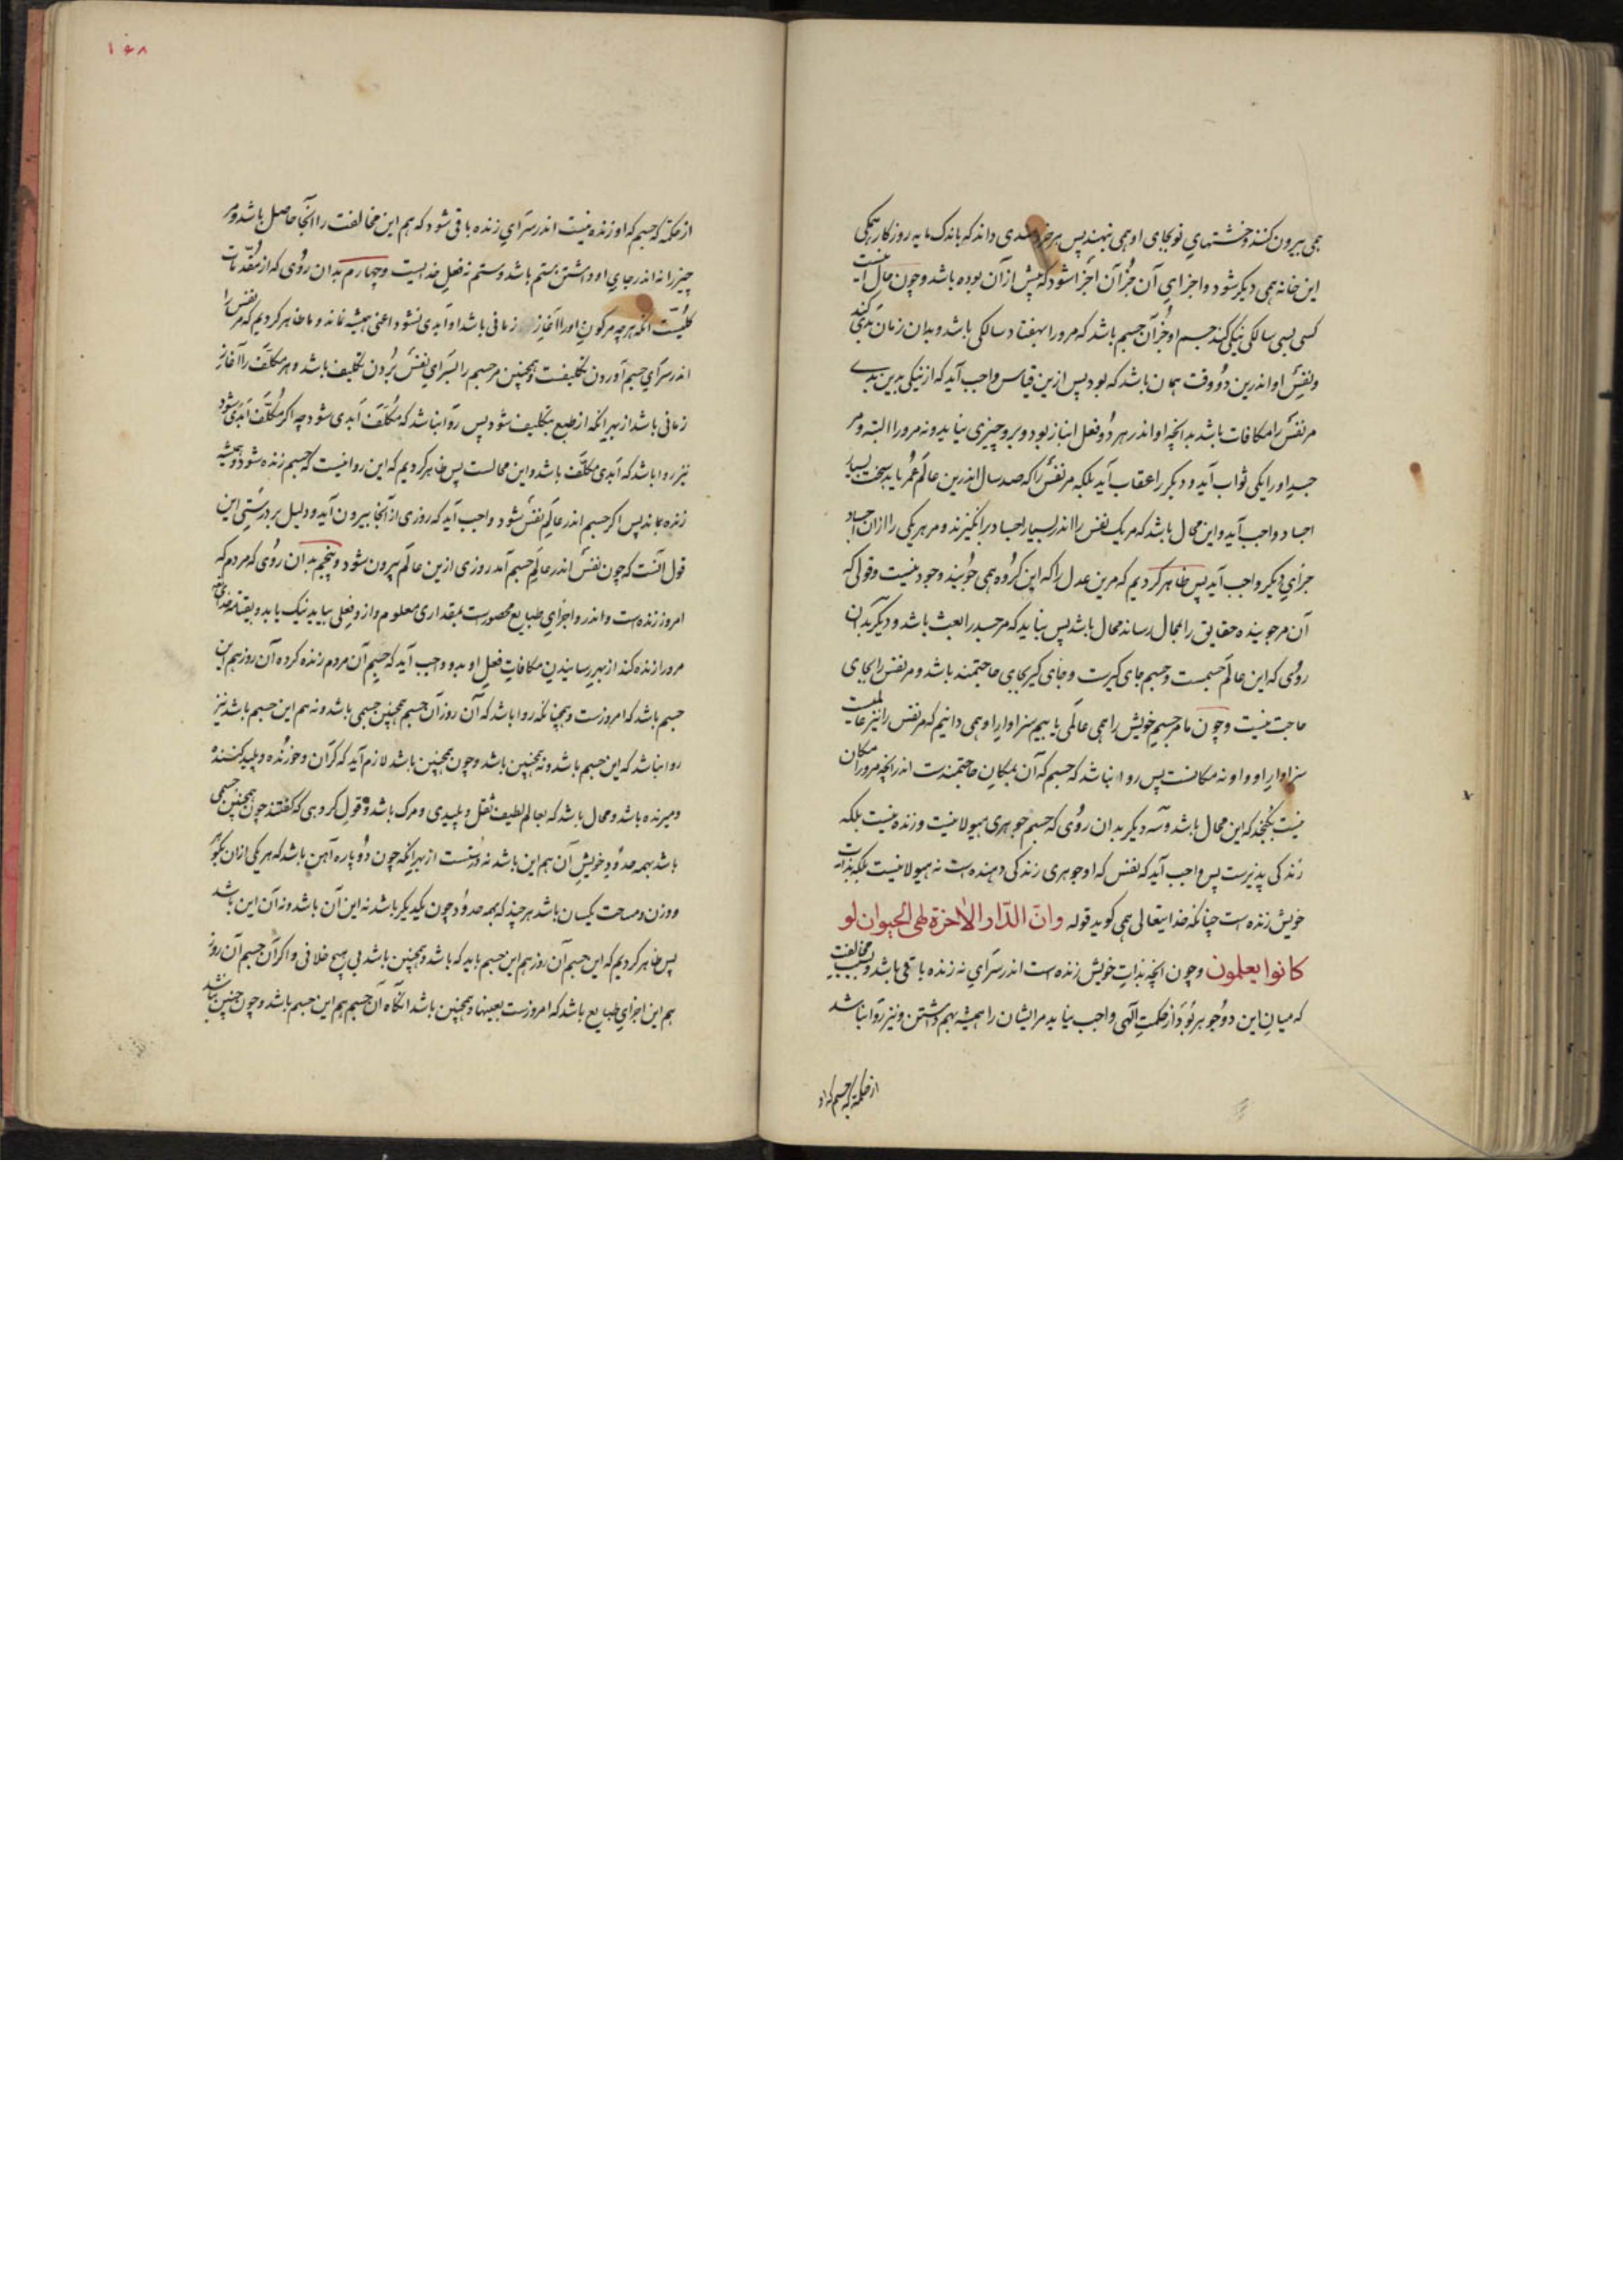 همی بیرون کنند و خشتهای نو بجای او همی نهند پس هر خردمندی داند که باندک مایه روزکار همکی
این خانه همی دیکر شود و اجزای آن جز آن اجزا شود که پیش ازآن بوده باشد و چون حال اینست
کسی بسی سالکی نیکی کند جسم او جز آن جسم باشد که مرورا بهفتاد سالکی باشد و بدان زمان بدی کند
و نفس او اندرین دو وقت همان باشد که بود پس ازین قیاس واجب آید که از نیکی بدین بدی
مر نفس را مکافات باشد بدانچه او اندر هر دو فعل انباز بود و برو چیزی نیاید و نه مرورا البته و مر
جسد او را یکی ثواب آید و دیکر را عقاب آید بلکه مر نفس را که صد سال اندرین عالم عمر یابد سخت بسیار
اجساد واجب آید و این محال باشد که مر یک نفس را اندر بسیار اجساد برانکیزند و مر هر یکی را ازان اجساد
جزای دیکر واجب آید پس ظاهر کردیم که مرین عدل را که این کروه همی جویند وجود نیست و قولی که
آن مر جوینده حقایق را بمحال رساند محال باشد پس نباید که مر جسد را بعث باشد و دیکر بدان
روی که این عالم جسمست و جسم جای کیرست و جای کیر بجای حاجتمند باشد و مر نفس را بجای
حاجت نیست و چون ما مر جسم خویش را همی عالمی یابیم سزاوار او همی دانیم که مر نفس را نیز عالمیست
سزاوار او و او نه مکانست پس روا نباشد که جسم که آن بمکان حاجتمندست اندر انچه مرورا مکان
نیست بکنجد که این محال باشد و سه دیکر بدان روی که جسم جوهری هیولانیست و زنده نیست بلکه
زندکی پذیرست پس واجب آید که نفس که او جوهری زندکی دهنده است نه هیولانیست بلکه بذات
خویش زنده است چنانکه خدایتعالی همی کوید قوله وان الدار الاخرة لهی الحیوان لو
کانوا یعلمون و چون انچه بذات خویش زنده است اندر سرای نه زنده باقی باشد و بسبب مخالفت
که میان این دو جوهر بود از حکمت الهی واجب نیاید مرایشان را همیشه بهم داشتن و نیز روا نباشد
از حکمة که جسم که او
از حکمة که جسم که او زنده نیست اندر سرای زنده باقی شود که هم این مخالفت را آنجا حاصل باشد و مر
چیز را نه اندر جای او داشتن بستم باشد و ستم نه فعل خدایست و چهارم بدان روی که از مقدمات
کلیست انکه هرچه مر کون اورا آغاز زمانی باشد او ابدی نشود اعنی همیشه نماند و ما ظاهر کردیم که مر نفس را
اندر سرای جسم آوردن تکلیفست و همچنین مر جسم را بسرای نفس بردن تکلیف باشد و هر مکلف را آغاز
زمانی باشد از بهر انکه از طبع بتکلیف شود پس روا نباشد که مکلف ابدی شود چه اکر مکلف ابدی شود
نیز روا باشد که ابدی مکلف باشد و این محالست پس ظاهر کردیم که این روا نیست که جسم زنده شود و همیشه
زنده بماند پس اکر جسم اندر عالم نفس شود واجب آید که روزی از آنجا بیرون آید و دلیل بر درستی این
قول آنست که چون نفس اندر عالم جسم آمد روزی ازین عالم بیرون شود و پنجم بدان روی که مردم که
امروز زنده است و اندر و اجزای طبایع محصورست بمقداری معلوم و ازو فعلی بیاید نیک یا بد و
مرورا زنده کند از بهر رسانیدن مکافات فعل او بدو واجب آید که جسم آن مردم زنده کرده آن روز هم این
جسم باشد که امروزست و همچنانکه روا باشد که آن روز آن جسم همچنین جسمی باشد و نه هم این جسم باشد نیز
روا نباشد که این جسم باشد و نه همچنین باشد و چون همچنین باشد لازم آید که کران و خورنده و پلید کننده
و میرنده باشد و محال باشد که بعالم لطیف ثقل و پلیدی و مرک باشد و قول کروهی که کفتند چون همچنین جسمی
باشد بهمه حدود خویش آن هم این باشد نه درست از بهر انکه چون دو پاره آهن باشد که هر یکی ازان بکوهر
و وزن و مساحت یکسان باشد هرچند که بهمه حدود چون یکدیکر باشد نه این آن باشد و نه آن این باشد
پس ظاهر کردیم که این جسم آن روز هم این جسم باید که باشد و همچنین باشد بی هیچ خلافی و اکر آن جسم آن روز
هم این اجزای طبایع باشد که امروزست بعینها و همچنین باشد انکاه آن جسم هم این جسم باشد و چون چنین باشد